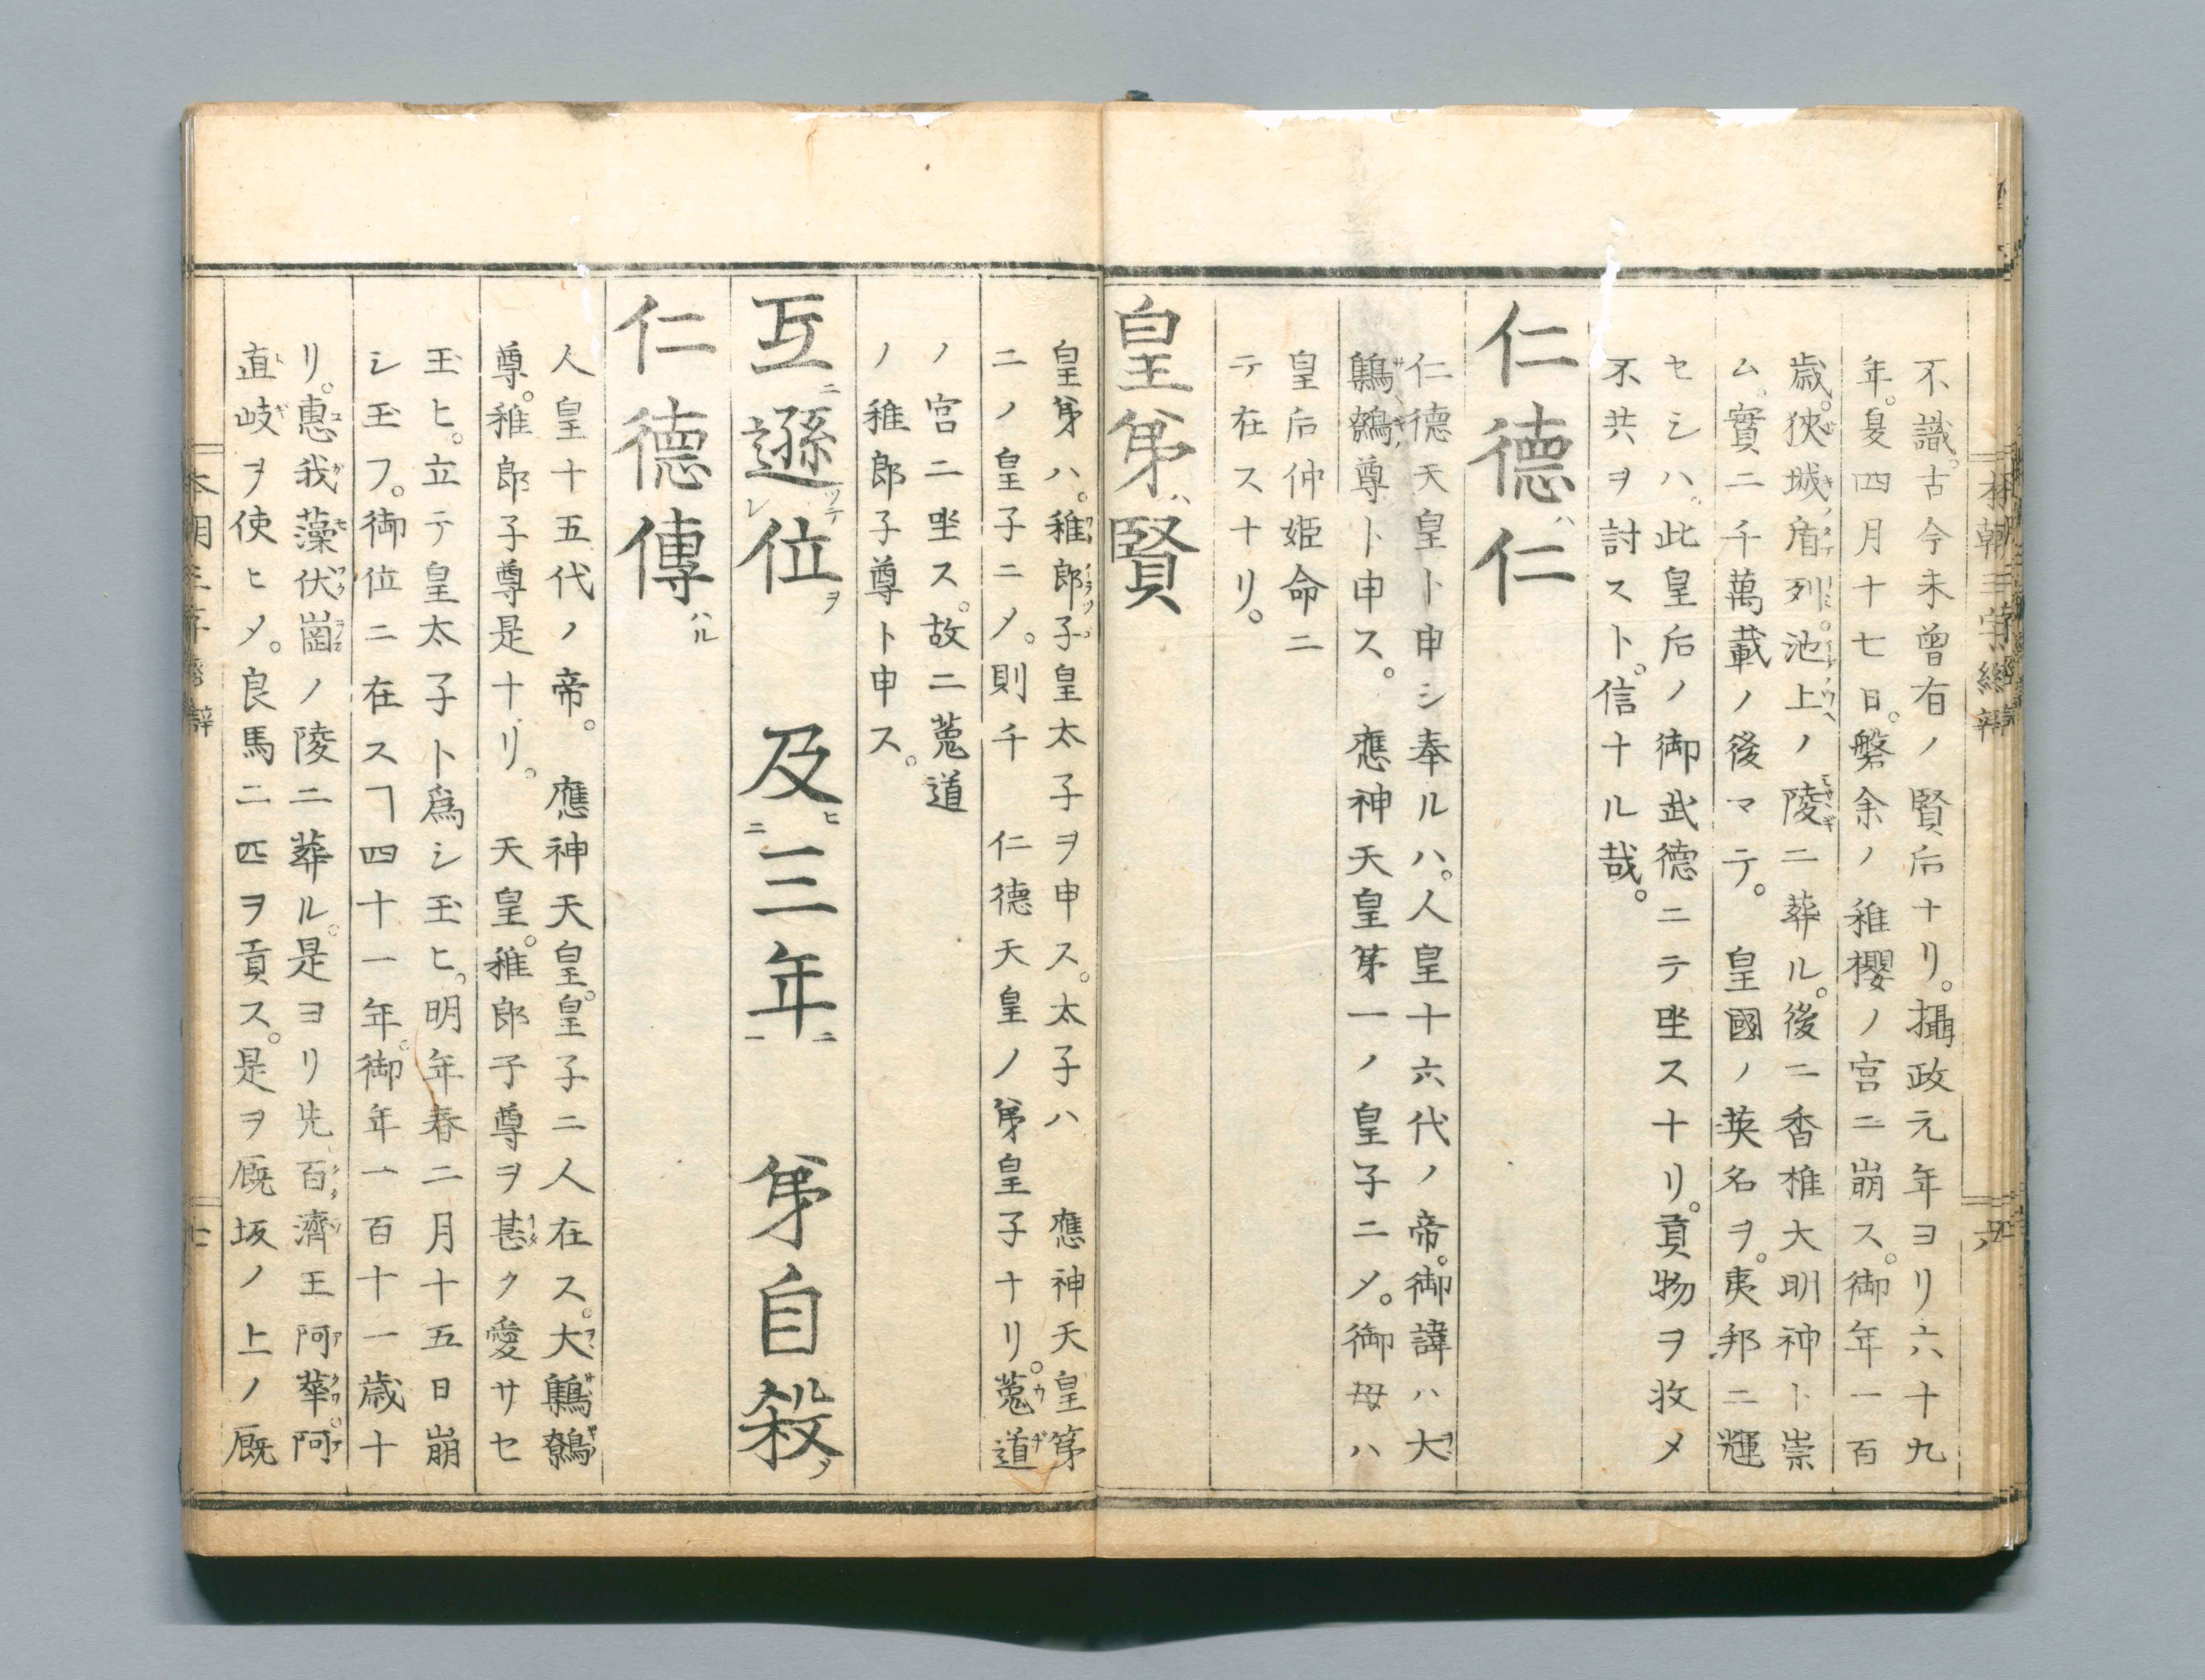 不識。古今未曾有ノ賢后ナリ。攝政元年ヨリ六十九
年。夏四月十七日。磐余ノ稚櫻ノ宮ニ崩ス。御年一百
歳。狹城盾列池上ノ陵ニ葬ル。後ニ香椎大明神ト崇
ム。實ニ千萬載ノ後マテ。皇國ノ英名ヲ。夷邦ニ輝
セシハ。此皇后ノ御武德ニテ坐スナリ。貢物ヲ收メ
不共ヲ討スト。信ナル哉。
仁德ハ仁
仁德天皇ト申シ奉ルハ。人皇十六代ノ帝。御諱ハ大
鷦鷯尊ト申ス。應神天皇第一ノ皇子ニメ。御母ハ
皇后仲姫命ニ
テ在スナリ。
皇第ハ賢
皇第ハ。稚郎子皇太子ヲ申ス。太子ハ應神天皇第
二ノ皇子ニメ。則千仁德天皇ノ第皇子ナリ。菟道
ノ宮ニ坐ス。故ニ菟道
ノ稚郎子尊ト申ス。
互ニ遜ツテレ位ヲ 及ヒニ三年ニ一 第自殺ノ
仁德傳ハル
人皇十五代ノ帝。應神天皇。皇子二人在ス。大鷦鷯
尊。稚郎子尊是ナリ。天皇。稚郎子尊ヲ甚ク愛サセ
玉ヒ。立テ皇太子ト爲シ玉ヒ。明年春二月十五日崩
シ玉フ。御位ニ在スヿ四十一年。御年一百十一歳ナ
リ。惠我藻伏崗ノ陵ニ葬ル。是ヨリ先百濟王阿華阿
直岐ヲ使ヒメ。良馬二匹ヲ貢ス。是ヲ厩坂ノ上ノ厩